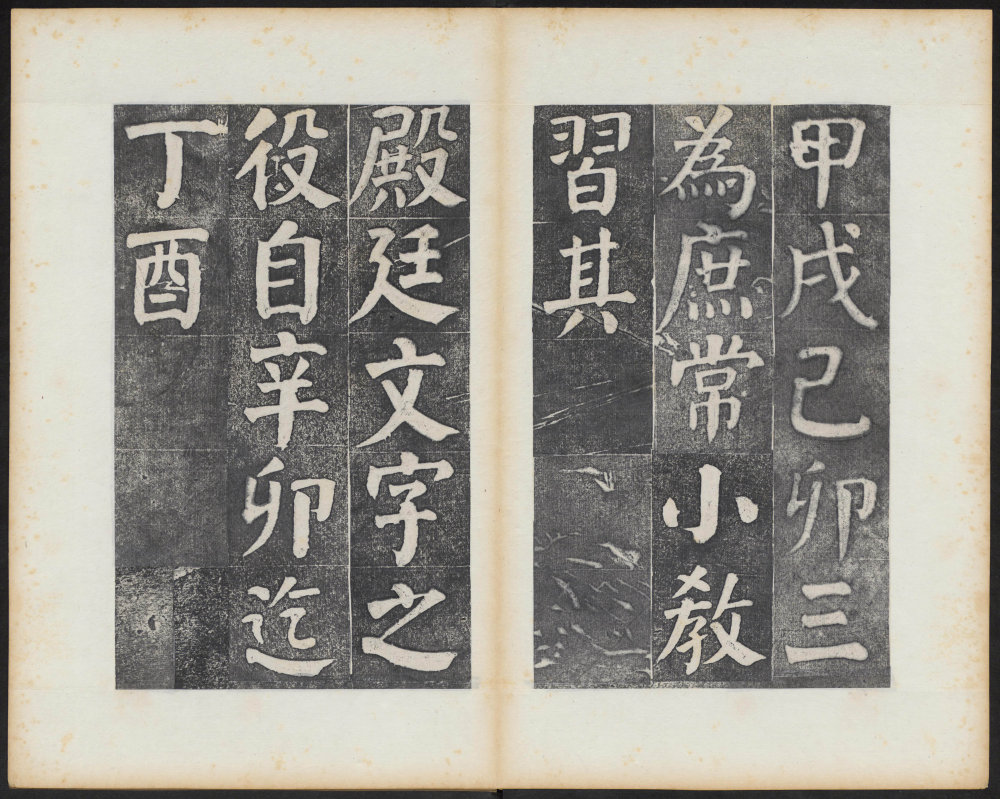 甲戌己卯三
為庶常小教
習其
殿廷文字之
役自辛卯迄
丁酉